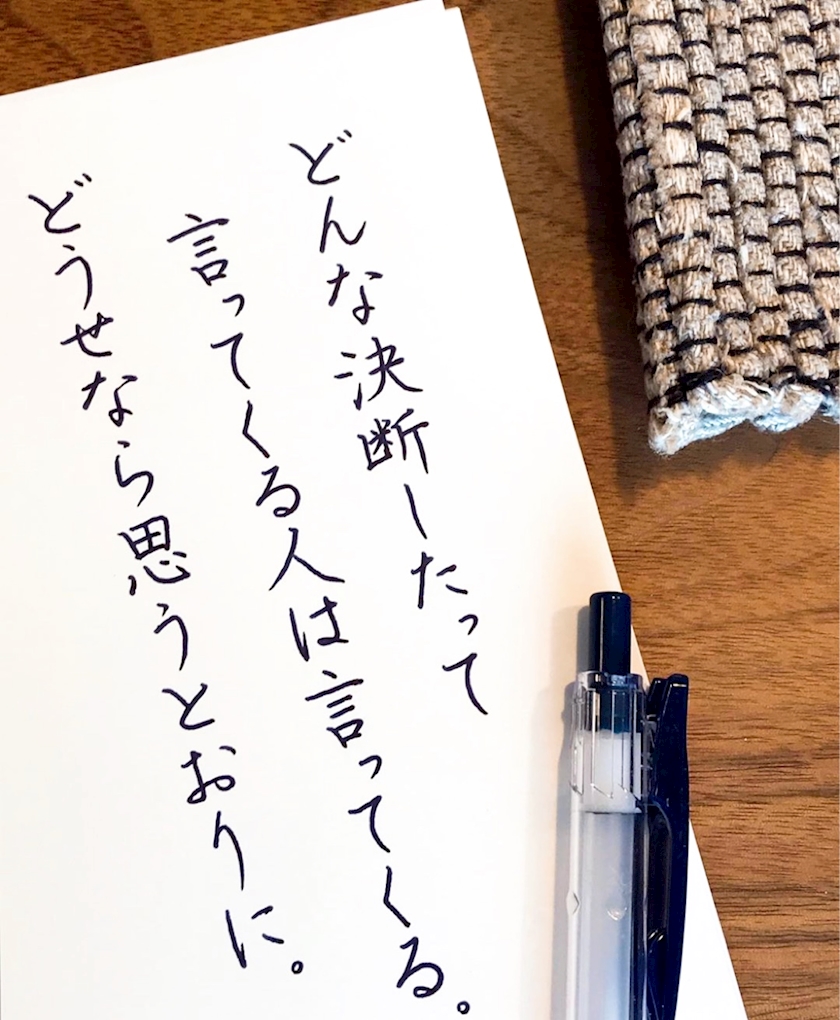 どんな決断したって
言ってくる人は言ってくる。
どうせなら思うとおりに。